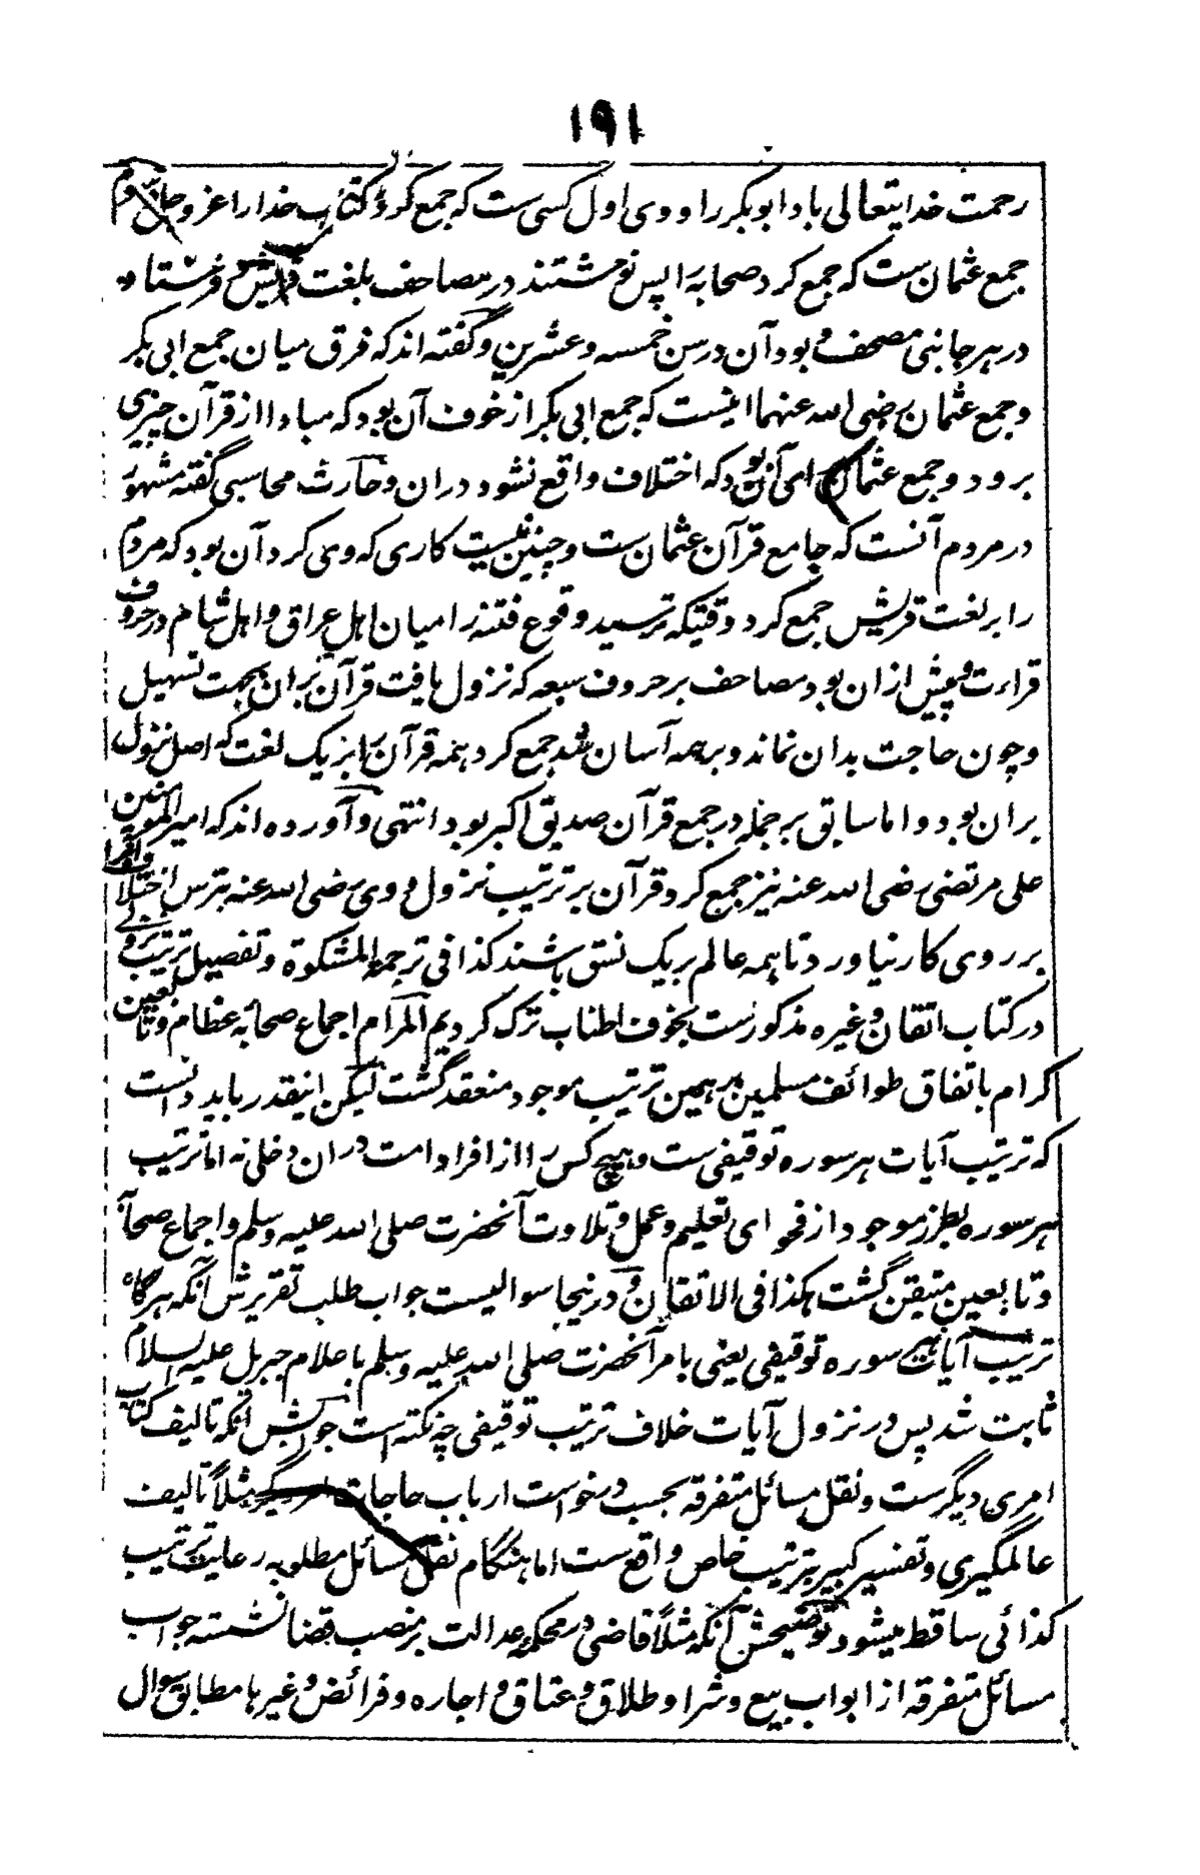 ۱۹۱
رحمت خدایتعالی باد ابوبکر را و وی اول کسی ست که جمع کرد کتاب خدا را عز و جل دوم
جمع عثمان ست که جمع کرد صحابه را پس نوشتند در مصاحف بلغت قریش و فرستاد
در هر جانبی مصحف و بود آن در سن خمسه و عشرین و گفته اند که فرق میان جمع ابی بکر
و جمع عثمان رضی الله عنهما اینست که جمع ابی بکر از خوف آن بود که مبادا از قرآن چیزی
برود و جمع عثمان برای آن بود که اختلاف واقع نشود دران و حارث محاسبی گفته مشهور
در مردم آنست که جامع قرآن عثمان ست و چنین نیست کاری که وی کرد آن بود که مردم
را بر لغت قریش جمع کرد وقتیکه ترسید وقوع فتنه را میان اهل عراق و اهل شام در حروف
قراءت و پیش ازان بود مصاحف بر حروف سبعه که نزول یافت قرآن بران بجهت تسهیل
و چون حاجت بدان نماند و بر همه آسان شد جمع کرد همه قرآن را بر یک لغت که اصل نزول
بران بود و اما سابق بر جمله در جمع قرآن صدیق اکبر بود انتهی و آورده اند که امیر المومنین
علی مرتضی رضی الله عنه نیز جمع کرد قرآن بر ترتیب نزول و وی رضی الله عنه بترس اختلاف
بر روی کار نیاورد تا همه عالم بر یک نسق باشند کذا فی ترجمة المشکوة و تفصیل ترتیب
در کتاب اتقان و غیره مذکورست بخوف اطناب ترک کردیم المرام اجماع صحابه عظام و تابعین
کرام باتفاق طوائف مسلمین برهمین ترتیب موجود منعقد گشت لیکن اینقدر باید دانست
که ترتیب آیات هر سوره توقیفی ست و هیچ کس را از افراد امت دران دخلی نه اما ترتیب
هر سوره بطرز موجود از فحوای تعلیم و عمل و تلاوت آنحضرت صلی الله علیه وسلم و اجماع صحابه
و تابعین متیقن گشت هکذا فی الاتقان و درینجا سوالیست جواب طلب تقریرش آنکه هرگاه
ترتیب آیات هر سوره توقیفی یعنی بامر آنحضرت صلی الله علیه وسلم باعلام جبریل علیه السلام
ثابت شد پس در نزول آیات خلاف ترتیب توقیفی چه نکته است جوابش آنکه تالیف کتاب
امری دیگرست و نقل مسائل متفرقه بحسب درخواست ارباب حاجات امر دیگر مثلاً تالیف
عالمگیری و تفسیر کبیر بترتیب خاص واقع ست اما هنگام نقل مسائل مطلوبه رعایت ترتیب
کذائی ساقط میشود توضیحش آنکه مثلاً قاضی در محکمه عدالت بر منصب قضا نشسته جواب
مسائل متفرقه از ابواب بیع و شرا و طلاق و عتاق و اجاره و فرائض و غیرها مطابق سوال